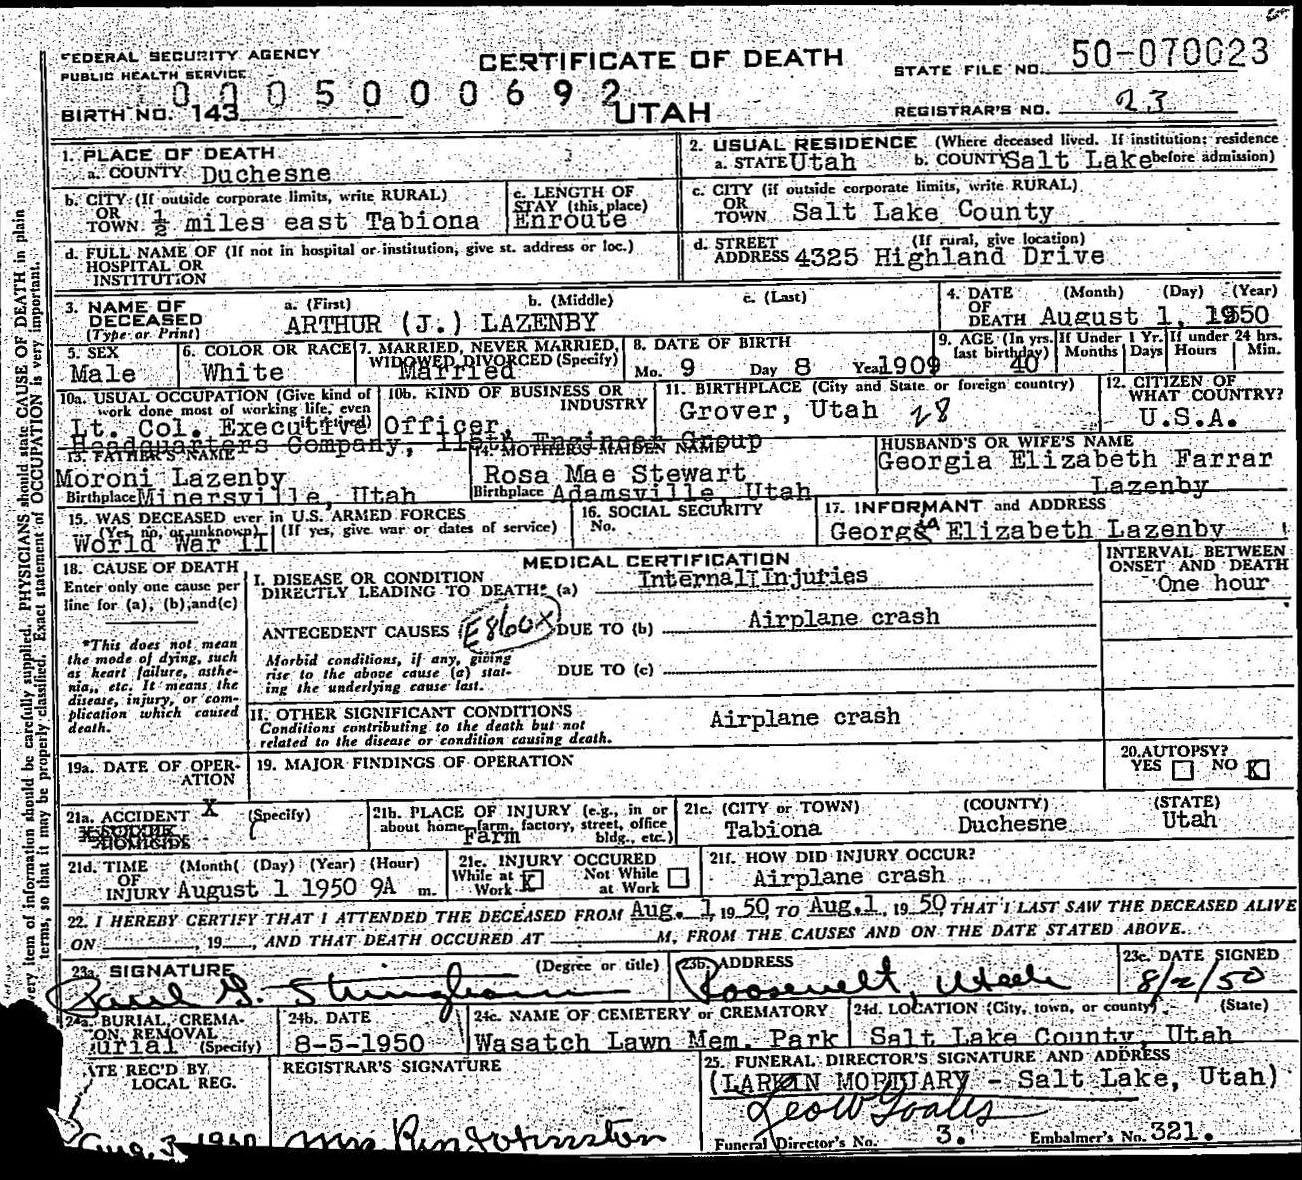 FEDERAL SECURITY AGENCY
PUBLIC HEALTH SERVICE
BIRTH NO. 143
0005000692
CERTIFICATE OF DEATH
UTAH
STATE FILE NO. 50-070023
REGISTRAR'S NO. 23
very item of information should be carefully supplied. PHYSICIANS should state CAUSE OF DEATH in plain
terms, so that it may be properly classified. Exact statement of OCCUPATION is very important.
1. PLACE OF DEATH
a. COUNTY Duchesne
2. USUAL RESIDENCE (Where deceased lived. If institution; residence
a. STATE Utah b. COUNTY Salt Lake before admission)
b. CITY (If outside corporate limits, write RURAL)
OR
TOWN ½ miles east Tabiona
c. LENGTH OF
STAY (this place)
Enroute
c. CITY (if outside corporate limits, write RURAL)
OR
TOWN Salt Lake County
d. FULL NAME OF (If not in hospital or institution, give st. address or loc.)
HOSPITAL OR
INSTITUTION
d. STREET (If rural, give location)
ADDRESS 4325 Highland Drive
3. NAME OF a. (First) b. (Middle) c. (Last)
DECEASED
(Type or Print) ARTHUR (J.) LAZENBY
4. DATE (Month) (Day) (Year)
OF
DEATH August 1, 1950
5. SEX
Male
6. COLOR OR RACE
White
7. MARRIED, NEVER MARRIED,
WIDOWED DIVORCED (Specify)
Married
8. DATE OF BIRTH
Mo. 9 Day 8 Year 1909
9. AGE (In yrs. If Under 1 Yr. If under 24 hrs.
last birthday) Months Days Hours Min.
40
10a. USUAL OCCUPATION (Give kind of
work done most of working life, even
Lt. Col. Executive Officer,
10b. KIND OF BUSINESS OR
INDUSTRY
Headquarters Company, 115th Engineer Group
11. BIRTHPLACE (City and State or foreign country)
Grover, Utah 28
12. CITIZEN OF
WHAT COUNTRY?
U.S.A.
13. FATHER'S NAME
Moroni Lazenby
Birthplace Minersville, Utah
14. MOTHER'S MAIDEN NAME
Rosa Mae Stewart
Birthplace Adamsville, Utah
HUSBAND'S OR WIFE'S NAME
Georgia Elizabeth Farrar
Lazenby
15. WAS DECEASED ever in U.S. ARMED FORCES
(Yes, no, or unknown) (If yes, give war or dates of service)
World War II
16. SOCIAL SECURITY
No.
17. INFORMANT and ADDRESS
Georgia Elizabeth Lazenby
18. CAUSE OF DEATH
Enter only one cause per
line for (a), (b) and (c)
*This does not mean
the mode of dying, such
as heart failure, asthe-
nia, etc. It means the
disease, injury, or com-
plication which caused
death.
MEDICAL CERTIFICATION
I. DISEASE OR CONDITION
DIRECTLY LEADING TO DEATH* (a) Internal Injuries
ANTECEDENT CAUSES (E860X) DUE TO (b) Airplane crash
Morbid conditions, if any, giving
rise to the above cause (a) stat-
ing the underlying cause last.
DUE TO (c)
II. OTHER SIGNIFICANT CONDITIONS
Conditions contributing to the death but not
related to the disease or condition causing death.
Airplane crash
INTERVAL BETWEEN
ONSET AND DEATH
One hour
19a. DATE OF OPER-
ATION
19. MAJOR FINDINGS OF OPERATION
20. AUTOPSY?
YES NO X
21a. ACCIDENT X (Specify)
SUICIDE
HOMICIDE
21b. PLACE OF INJURY (e.g., in or
about home, farm, factory, street, office
bldg., etc.)
Farm
21c. (CITY or TOWN) (COUNTY) (STATE)
Tabiona Duchesne Utah
21d. TIME (Month) (Day) (Year) (Hour)
OF
INJURY August 1 1950 9A m.
21e. INJURY OCCURED
While at Work X Not While at Work
21f. HOW DID INJURY OCCUR?
Airplane crash
22. I HEREBY CERTIFY THAT I ATTENDED THE DECEASED FROM Aug. 1, 1950, TO Aug. 1, 1950, THAT I LAST SAW THE DECEASED ALIVE
ON , 19 , AND THAT DEATH OCCURED AT M, FROM THE CAUSES AND ON THE DATE STATED ABOVE.
23a. SIGNATURE (Degree or title)
Paul G. Stringham
23b. ADDRESS
Roosevelt, Utah
23c. DATE SIGNED
8/2/50
24a. BURIAL, CREMA-
TION REMOVAL
urial (Specify)
24b. DATE
8-5-1950
24c. NAME OF CEMETERY or CREMATORY
Wasatch Lawn Mem. Park
24d. LOCATION (City, town, or county) (State)
Salt Lake County, Utah
ATE REC'D BY
LOCAL REG.
Aug. 3, 1950
REGISTRAR'S SIGNATURE
Mrs. Johnston
25. FUNERAL DIRECTOR'S SIGNATURE AND ADDRESS
(LARKIN MORTUARY - Salt Lake, Utah)
Leo W Goates
Funeral Director's No. 3. Embalmer's No. 321.